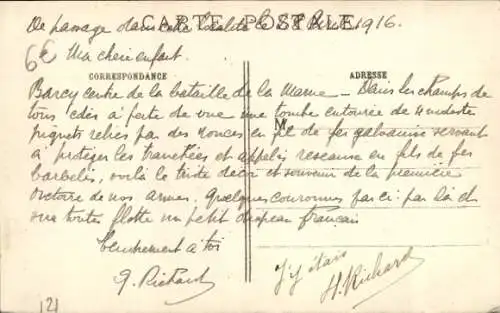 De passage dans cette localité le 28 1916.
CARTE POSTALE
6€
Ma chère enfant.
CORRESPONDANCE
ADRESSE
Barcy centre de la bataille de la Marne - Dans les champs de
tous côtés à perte de vue une tombe entourée de 4 modestes
M
piquets reliés par des ronces en fil de fer galvanisé servant
à protéger les tranchées et appelés réseaux en fils de fer
barbelés, voilà le triste décor et souvenir de la première
victoire de nos armes. Quelques couronnes par ci par là et
sur toutes flotte un petit drapeau français
Tendrement à toi
J'y étais
H. Richard
Richard
121